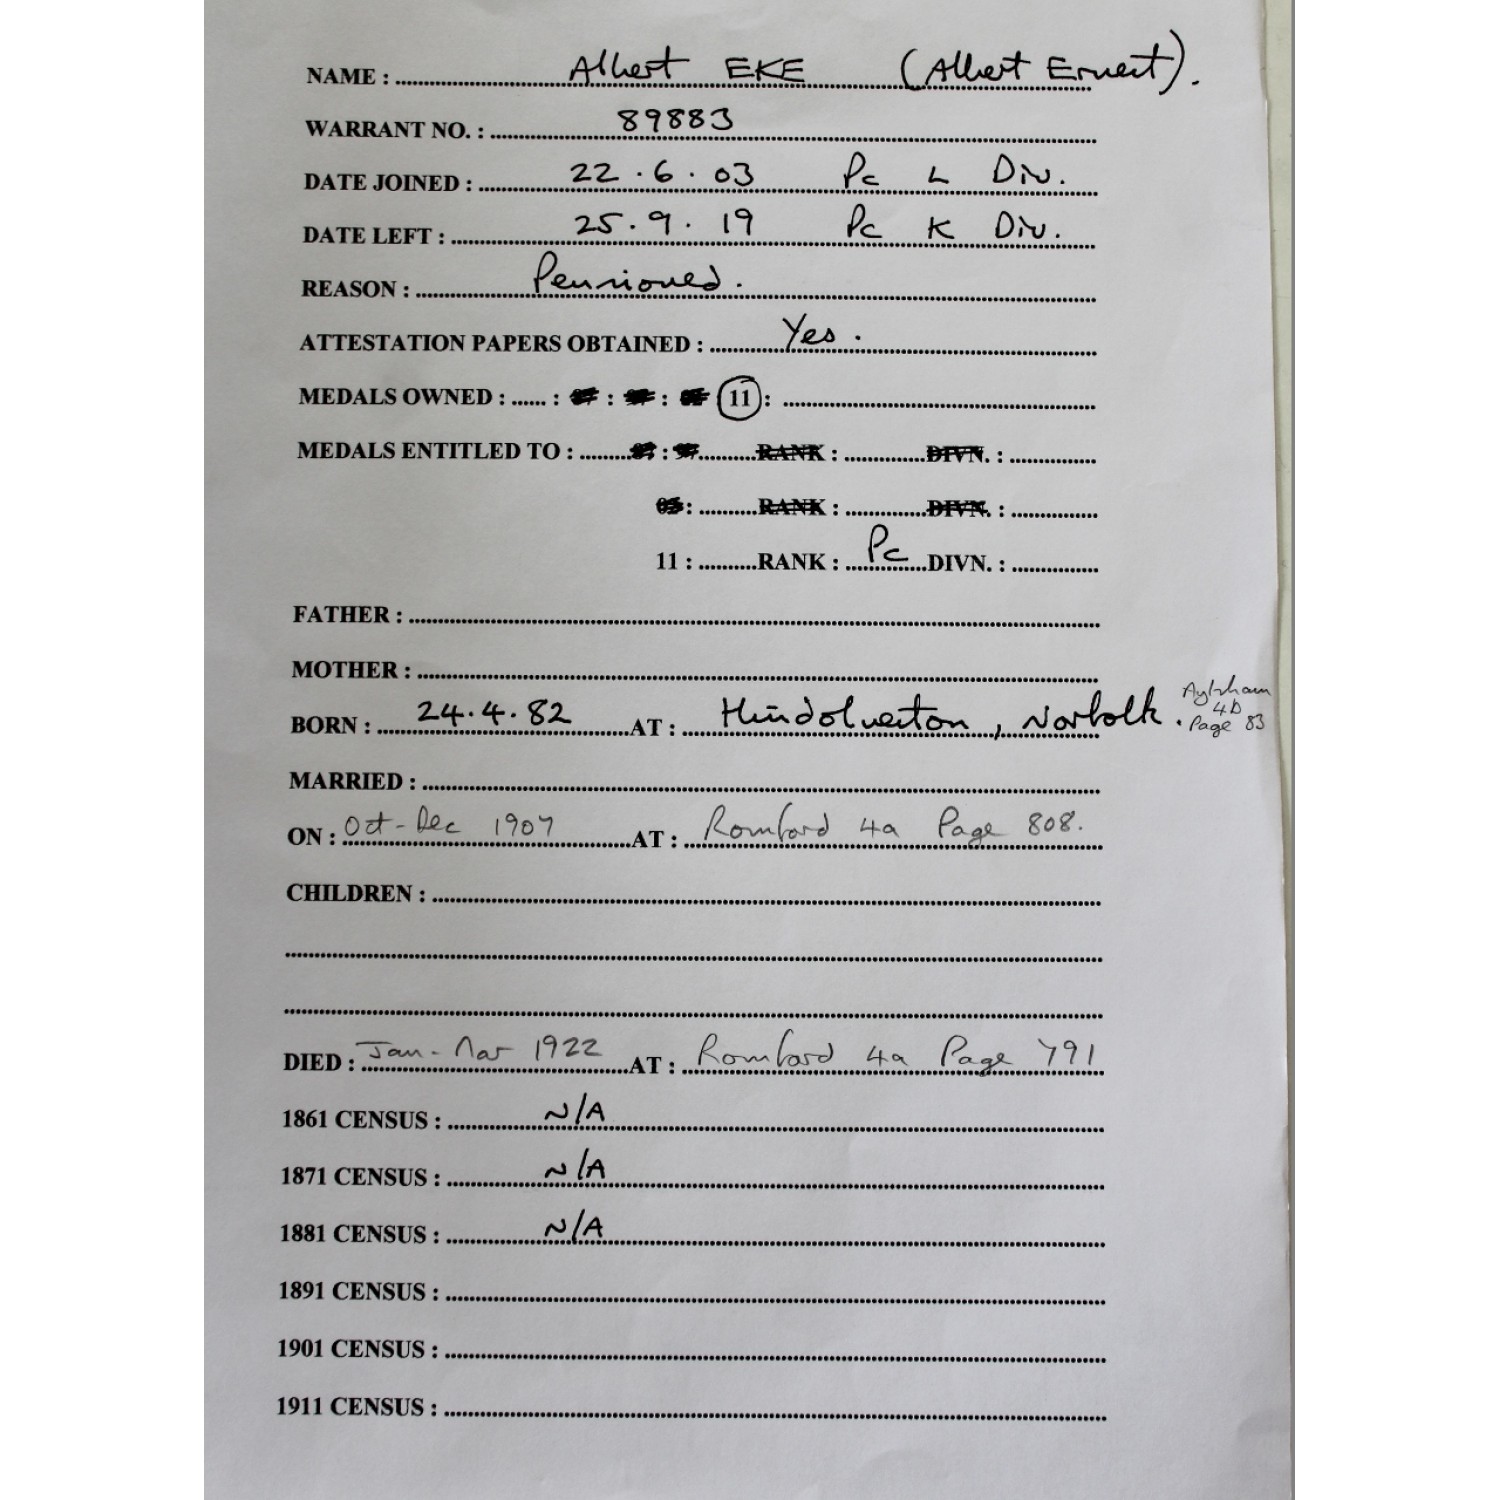 NAME : Albert EKE (Albert Ernest).
WARRANT NO. : 89883
DATE JOINED : 22.6.03 Pc L Div.
DATE LEFT : 25.9.19 Pc K Div.
REASON : Pensioned.
ATTESTATION PAPERS OBTAINED : Yes.
MEDALS OWNED : ...... : : : 11 :
MEDALS ENTITLED TO : : RANK : DIVN. :
: RANK : DIVN. :
11 : RANK : Pc DIVN. :
FATHER :
MOTHER :
BORN : 24.4.82 AT : Hindolveston, Norfolk. Aylsham 4b Page 83
MARRIED :
ON : Oct-Dec 1907 AT : Romford 4a Page 808.
CHILDREN :
DIED : Jan-Mar 1922 AT : Romford 4a Page 791
1861 CENSUS : N/A
1871 CENSUS : N/A
1881 CENSUS : N/A
1891 CENSUS :
1901 CENSUS :
1911 CENSUS :